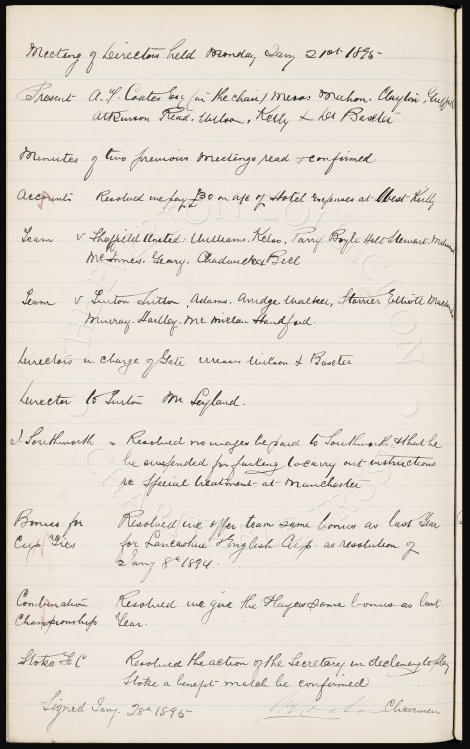 Meeting of Directors held Monday Jany 21st 1895
Present A. T. Coates Esq (in the chair) Messrs Mahon. Clayton, Griffiths
Atkinson Read. Wilson, Kelly & Dr Baxter
Minutes of two previous meetings read & confirmed
Accounts Resolved we pay £30 on a/c of Hotel Expenses at West Kirby
Team v Sheffield United: Williams. Kelso, Parry. Boyle Holt Stewart.
McInnes. Geary. Chadwick & Bell
Team v Luton Sutton, Adams. Arridge. Walker, Storrier Elliott
Murray. Hartley. Handford.
Directors in charge of Gate Messrs Wilson & Baxter
Director to Luton Mr Leyland.
J. Southworth Resolved no wages be paid to Southworth & that he
be suspended for failing to carry out instructions
re Special treatment at Manchester
Bonus for Resolved we offer team same bonus as last Year
Cup Ties for Lancashire & English Cup. as resolution of
Jany 8th 1894.
Combination Resolved we give the Players same bonus as last
Championship Year.
Stoke F.C Resolved the action of the Secretary in declining to play
Stoke a benefit match be confirmed
Signed Jany. 28th 1895 Chairman